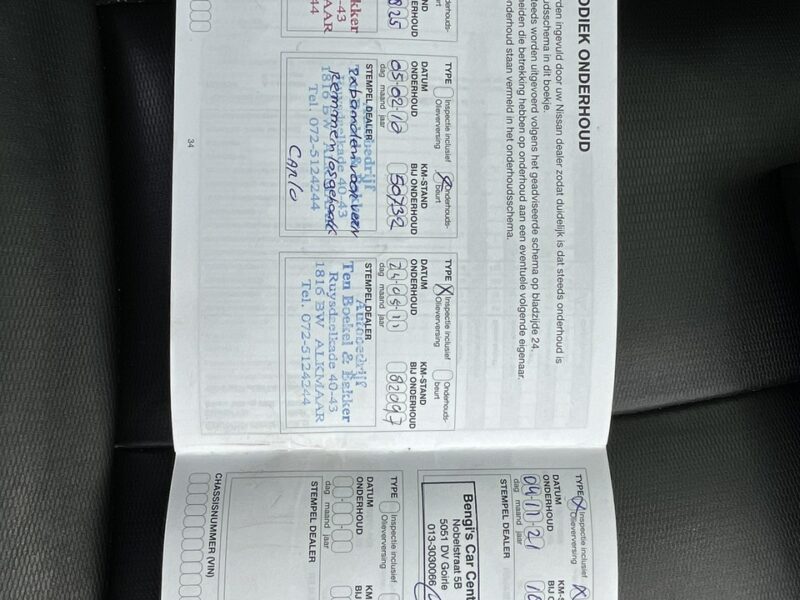 ODIEK ONDERHOUD
rden ingevuld door uw Nissan dealer zodat duidelijk is dat steeds onderhoud is
udsschema in dit boekje.
steeds worden uitgevoerd volgens het geadviseerde schema op bladzijde 24.
eiden die betrekking hebben op onderhoud aan een eventuele volgende eigenaar.
onderhoud staan vermeld in het onderhoudsschema.
STAND
ONDERHOUD
825
kker
-43
MAAR
44
TYPE Inspectie inclusief Olieverversing X Onderhouds-beurt
DATUM ONDERHOUD KM-STAND BIJ ONDERHOUD
05-02-10 50732
dag maand jaar
STEMPEL DEALER
edrijf
Ruysdaelkade 40-43
1816 BW
Tel. 072-5124244
Remmen losgehaald
Carlo
TYPE X Inspectie inclusief Olieverversing Onderhouds-beurt
DATUM ONDERHOUD KM-STAND BIJ ONDERHOUD
24-05-11 82097
dag maand jaar
STEMPEL DEALER
Autobedrijf
Ten Boekel & Bakker
Ruysdaelkade 40-43
1816 BW ALKMAAR
Tel. 072-5124244
34
TYPE X Inspectie inclusief Olieverversing X
DATUM ONDERHOUD KM-S BIJ O
04-11-21
dag maand jaar
STEMPEL DEALER
Bengi's Car Cent
Nobelstraat 5B
5051 DV Goirle
013-3030066
TYPE Inspectie inclusief Olieverversing
DATUM ONDERHOUD KM BIJ
dag maand jaar
STEMPEL DEALER
CHASSISNUMMER (VIN)